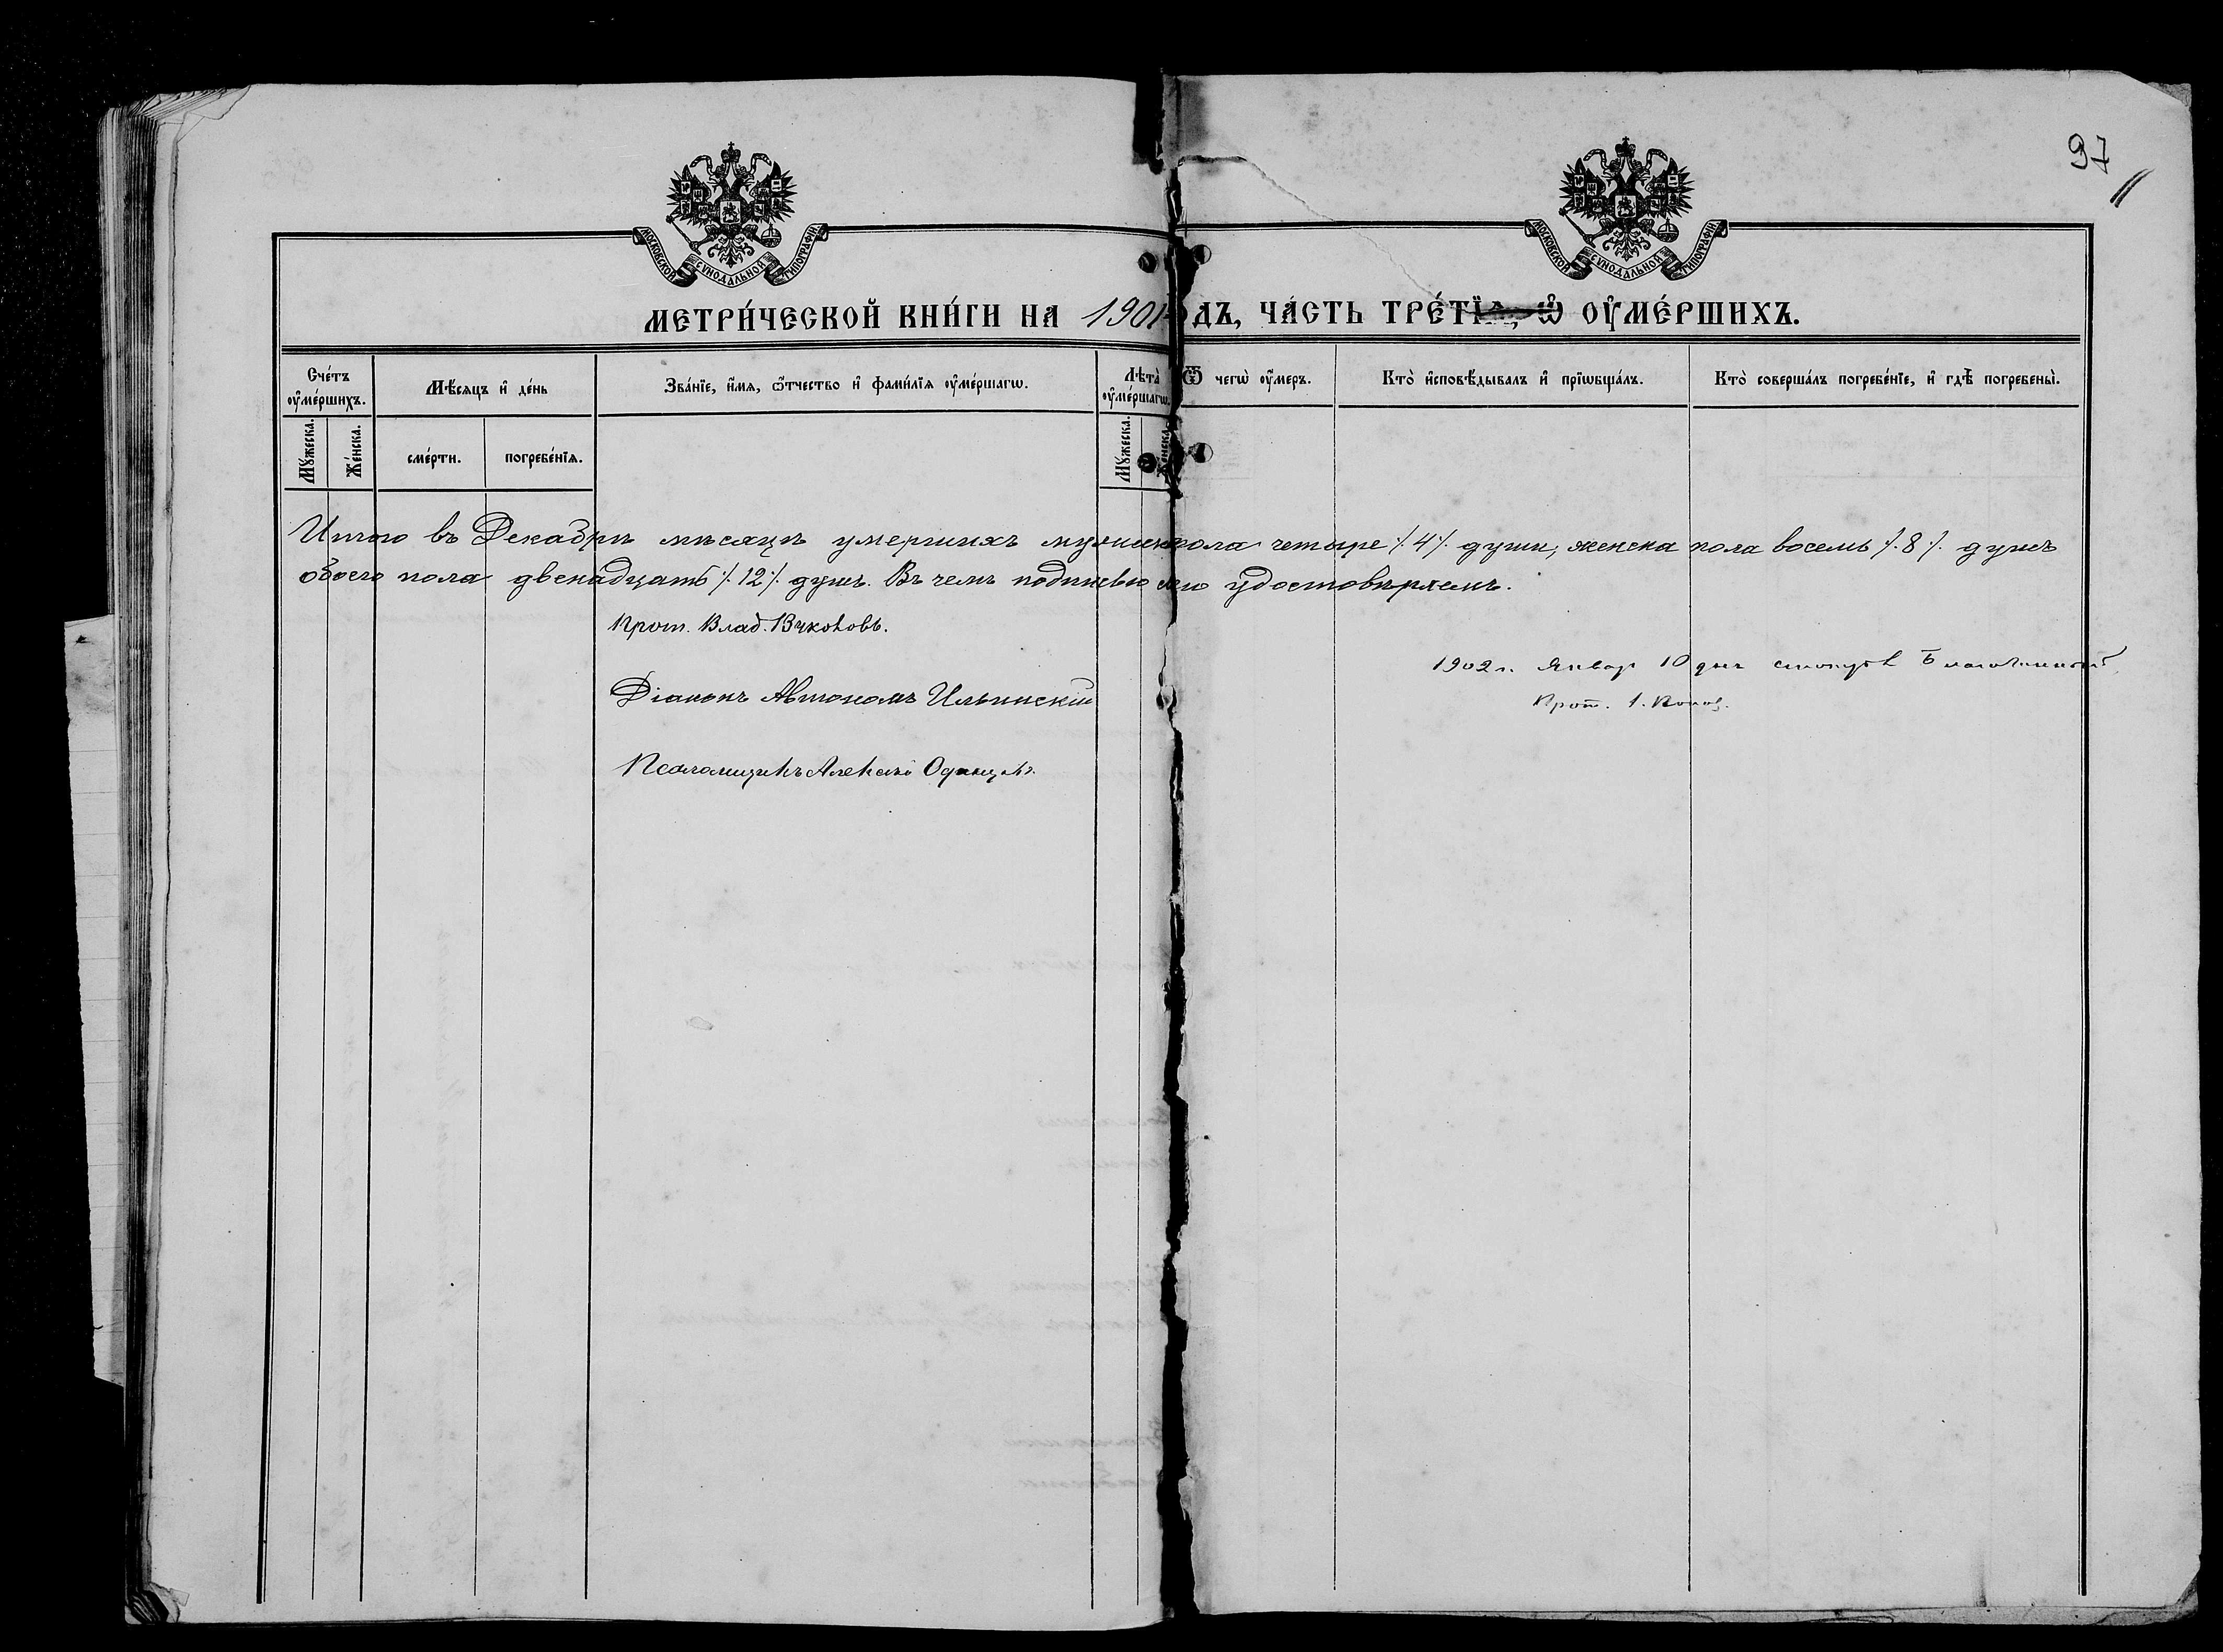 97
МОСКОВСКОЙ СѴНОДАЛЬНОЙ ТИПОГРАФІИ
МОСКОВСКОЙ СѴНОДАЛЬНОЙ ТИПОГРАФІИ
МЕТРИ́ЧЕСКОЙ КНИ́ГИ НА 1901 ДЪ, ЧА́СТЬ ТРЕ́ТЇѦ, Ѡ҆ ОУ҆МЕ́РШИХЪ.
Сче́тъ оу҆ме́ршихъ.
Мѣ́сѧцъ и҆ де́нь
Зва́нїе, и҆́мѧ, ѻ҆́тчество и҆ фами́лїѧ оу҆ме́ршагѡ.
Лѣта̀ оу҆ме́ршагѡ.
Ѿ чегѡ̀ оу҆́меръ.
Кто̀ и҆сповѣ́дывалъ и҆ прїѡбща́лъ.
Кто̀ соверша́лъ погребе́нїе, и҆ гдѣ̀ погребены̀.
Мꙋ́жеска.
Же́нска.
сме́рти.
погребе́нїѧ.
Мꙋ́жеска.
Же́нска.
Итого въ Декабрѣ мѣсяцѣ умершихъ мужеска пола четыре ·/. 4 ·/. души, женска пола восемь ·/. 8 ·/. душъ
обоего пола двенадцать ·/. 12 ·/. душъ. Въ чемъ подписью удостовѣряемъ.
Прот. Влад.
Діаконъ Автономъ Ильинскій
Псаломщикъ Алексѣй Одинцовъ.
1902 г. Январ 10 дня Благочинный
Прот. І. Попов.